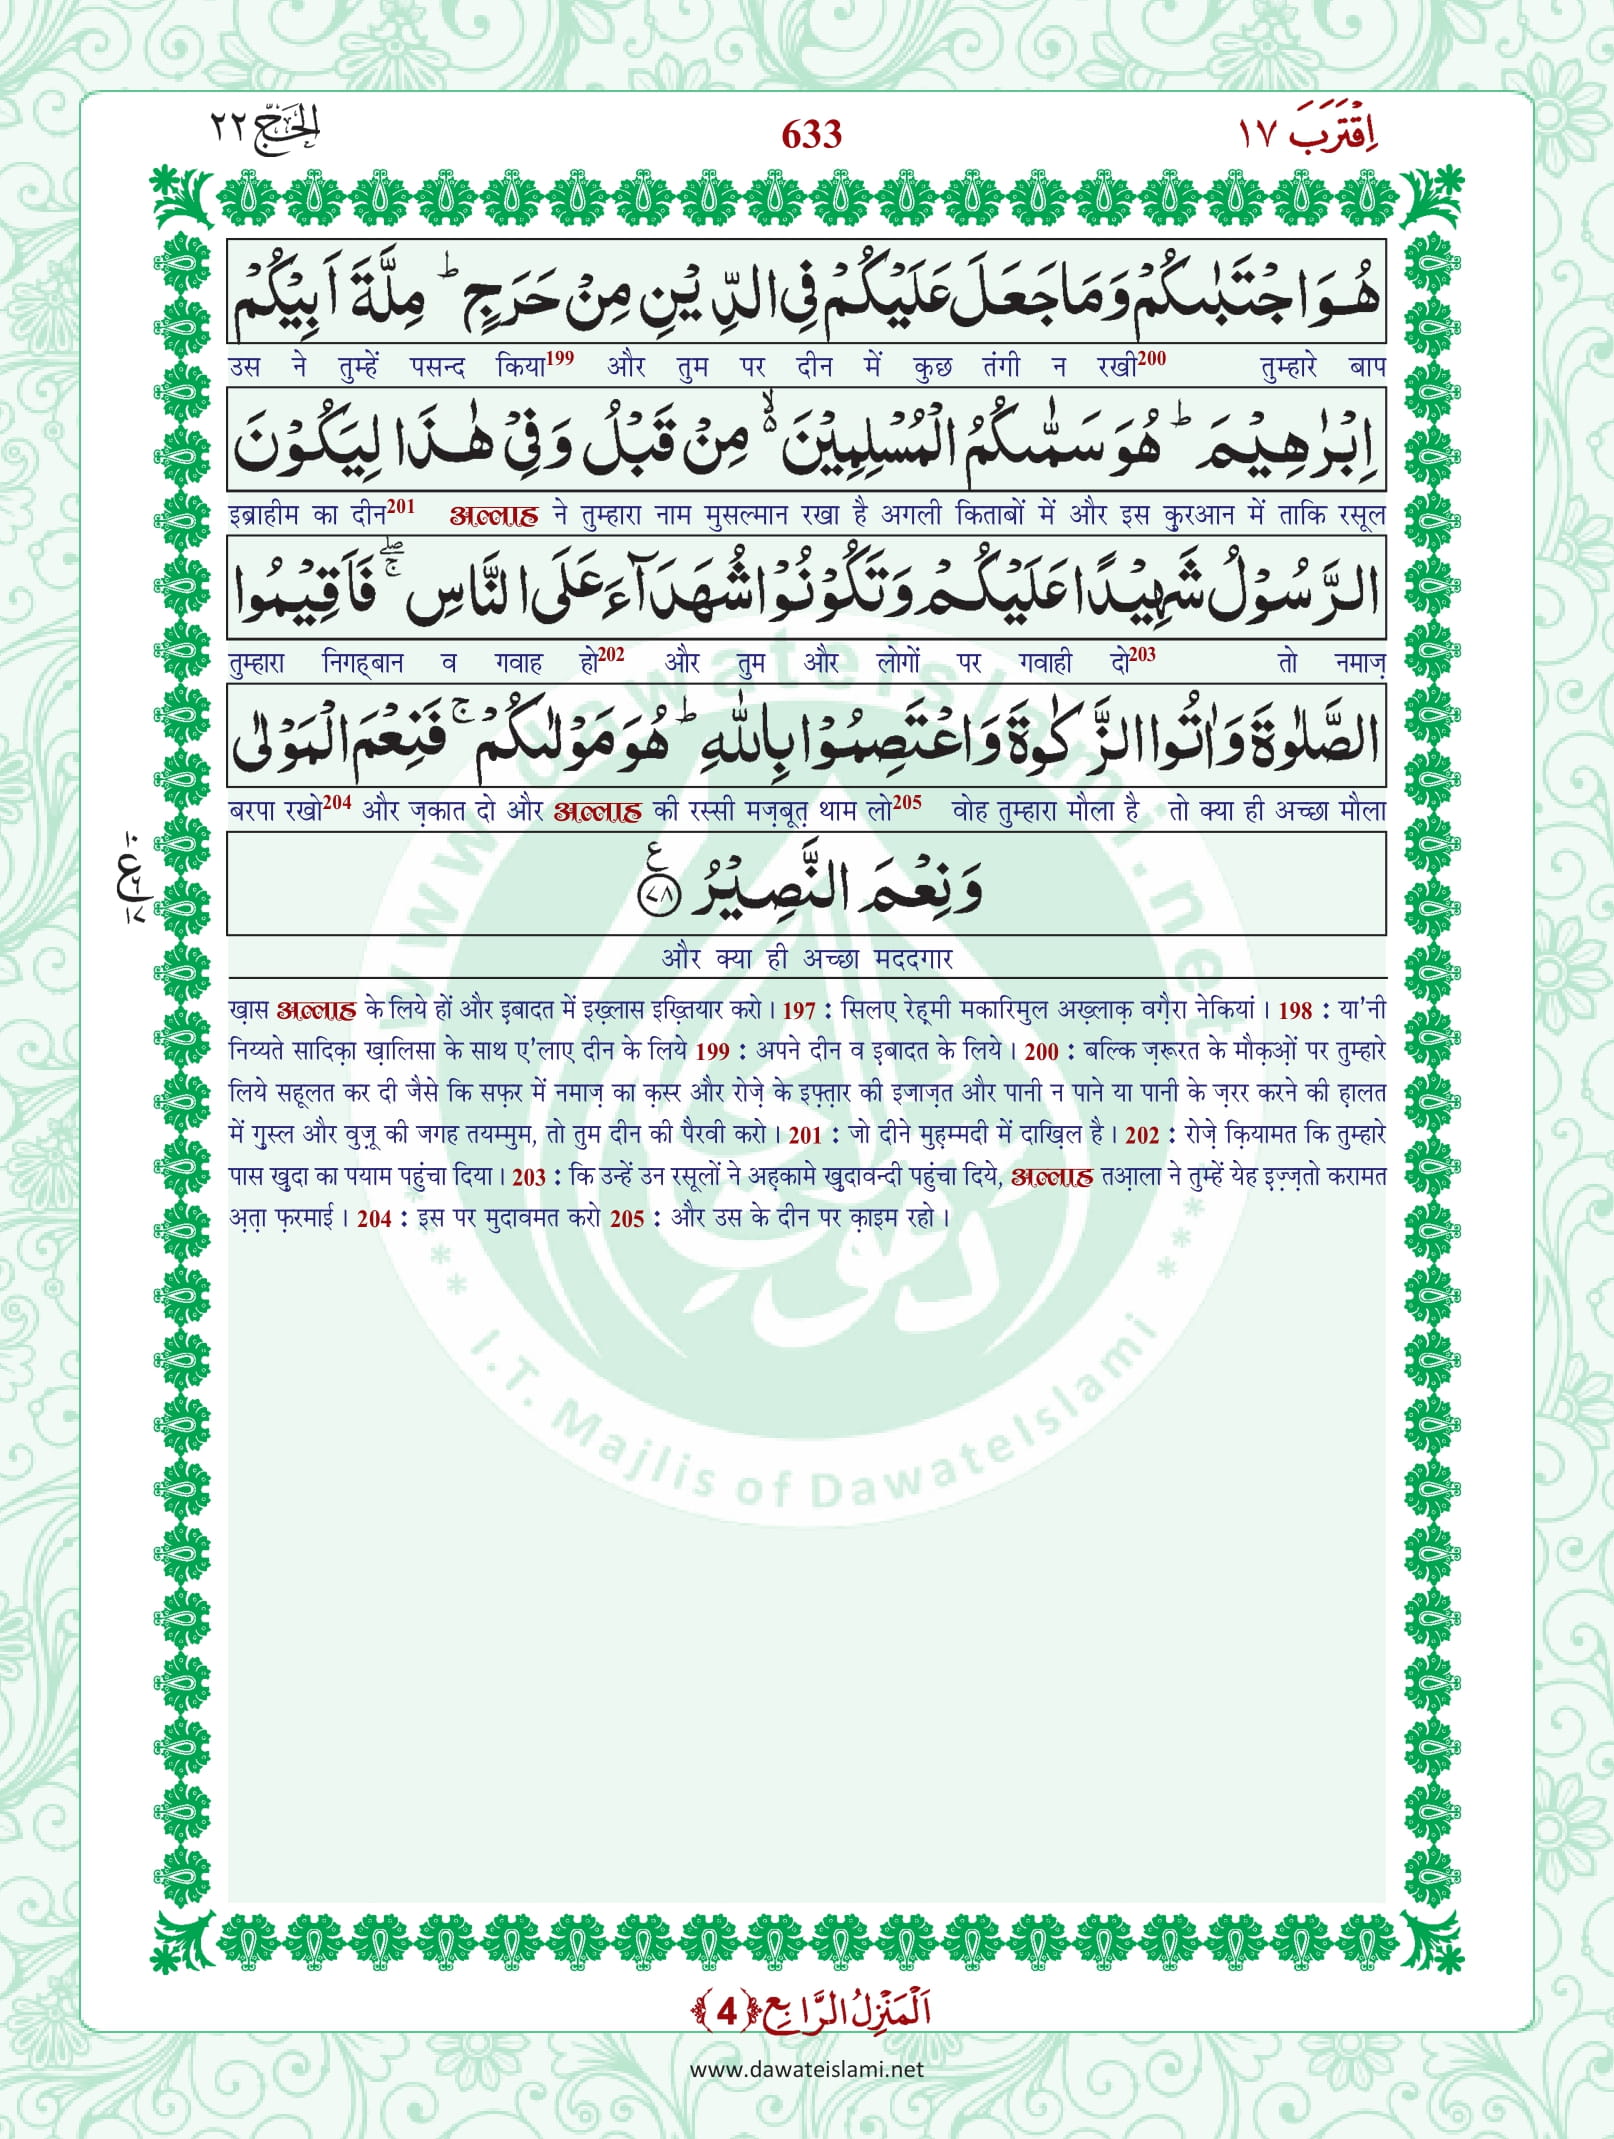 اِقْتَرَبَ ١٧ 633 الحَجّ ٢٢
هُوَ اجْتَبٰىكُمْ وَ مَا جَعَلَ عَلَیْكُمْ فِی الدِّیْنِ مِنْ حَرَجٍ ؕ مِلَّةَ اَبِیْكُمْ
उस ने तुम्हें पसन्द किया199 और तुम पर दीन में कुछ तंगी न रखी200 तुम्हारे बाप
اِبْرٰهِیْمَ ؕ هُوَ سَمّٰىكُمُ الْمُسْلِمِیْنَ ۙ۬ مِنْ قَبْلُ وَ فِیْ هٰذَا لِیَكُوْنَ
इब्राहीम का दीन201 अल्लाह ने तुम्हारा नाम मुसल्मान रखा है अगली किताबों में और इस क़ुरआन में ताकि रसूल
الرَّسُوْلُ شَهِیْدًا عَلَیْكُمْ وَ تَكُوْنُوْا شُهَدَآءَ عَلَى النَّاسِ ۖۚ فَاَقِیْمُوا
तुम्हारा निगह्बान व गवाह हो202 और तुम और लोगों पर गवाही दो203 तो नमाज़
الصَّلٰوةَ وَ اٰتُوا الزَّكٰوةَ وَ اعْتَصِمُوْا بِاللّٰهِ ؕ هُوَ مَوْلٰىكُمْ ۚ فَنِعْمَ الْمَوْلٰى
बरपा रखो204 और ज़कात दो और अल्लाह की रस्सी मज़बूत़ थाम लो205 वोह तुम्हारा मौला है तो क्या ही अच्छा मौला
وَ نِعْمَ النَّصِیْرُ ﴿٧٨﴾ ع
और क्या ही अच्छा मददगार
ख़ास अल्लाह के लिये हों और इ़बादत में इख़्लास इख़्तियार करो। 197 : सिलए रेह़्मी मकारिमुल अख़्लाक़ वग़ैरा नेकियां। 198 : या'नी
निय्यते सादिक़ा ख़ालिसा के साथ ए'लाए दीन के लिये 199 : अपने दीन व इ़बादत के लिये। 200 : बल्कि ज़रूरत के मौक़ओ़ं पर तुम्हारे
लिये सहूलत कर दी जैसे कि सफ़र में नमाज़ का क़स्र और रोज़े के इफ़्त़ार की इजाज़त और पानी न पाने या पानी के ज़रर करने की ह़ालत
में ग़ुस्ल और वुज़ू की जगह तयम्मुम, तो तुम दीन की पैरवी करो। 201 : जो दीने मुह़म्मदी में दाख़िल है। 202 : रोज़े क़ियामत कि तुम्हारे
पास ख़ुदा का पयाम पहुंचा दिया। 203 : कि उन्हें उन रसूलों ने अह़कामे ख़ुदावन्दी पहुंचा दिये, अल्लाह तआ़ला ने तुम्हें येह इ़ज़्ज़तो करामत
अ़त़ा फ़रमाई। 204 : इस पर मुदावमत करो 205 : और उस के दीन पर क़ाइम रहो।
www.dawateislami.net
I.T. Majlis of DawateIslami
اَلْمَنْزِلُ الرَّابِع ﴿4﴾
www.dawateislami.net